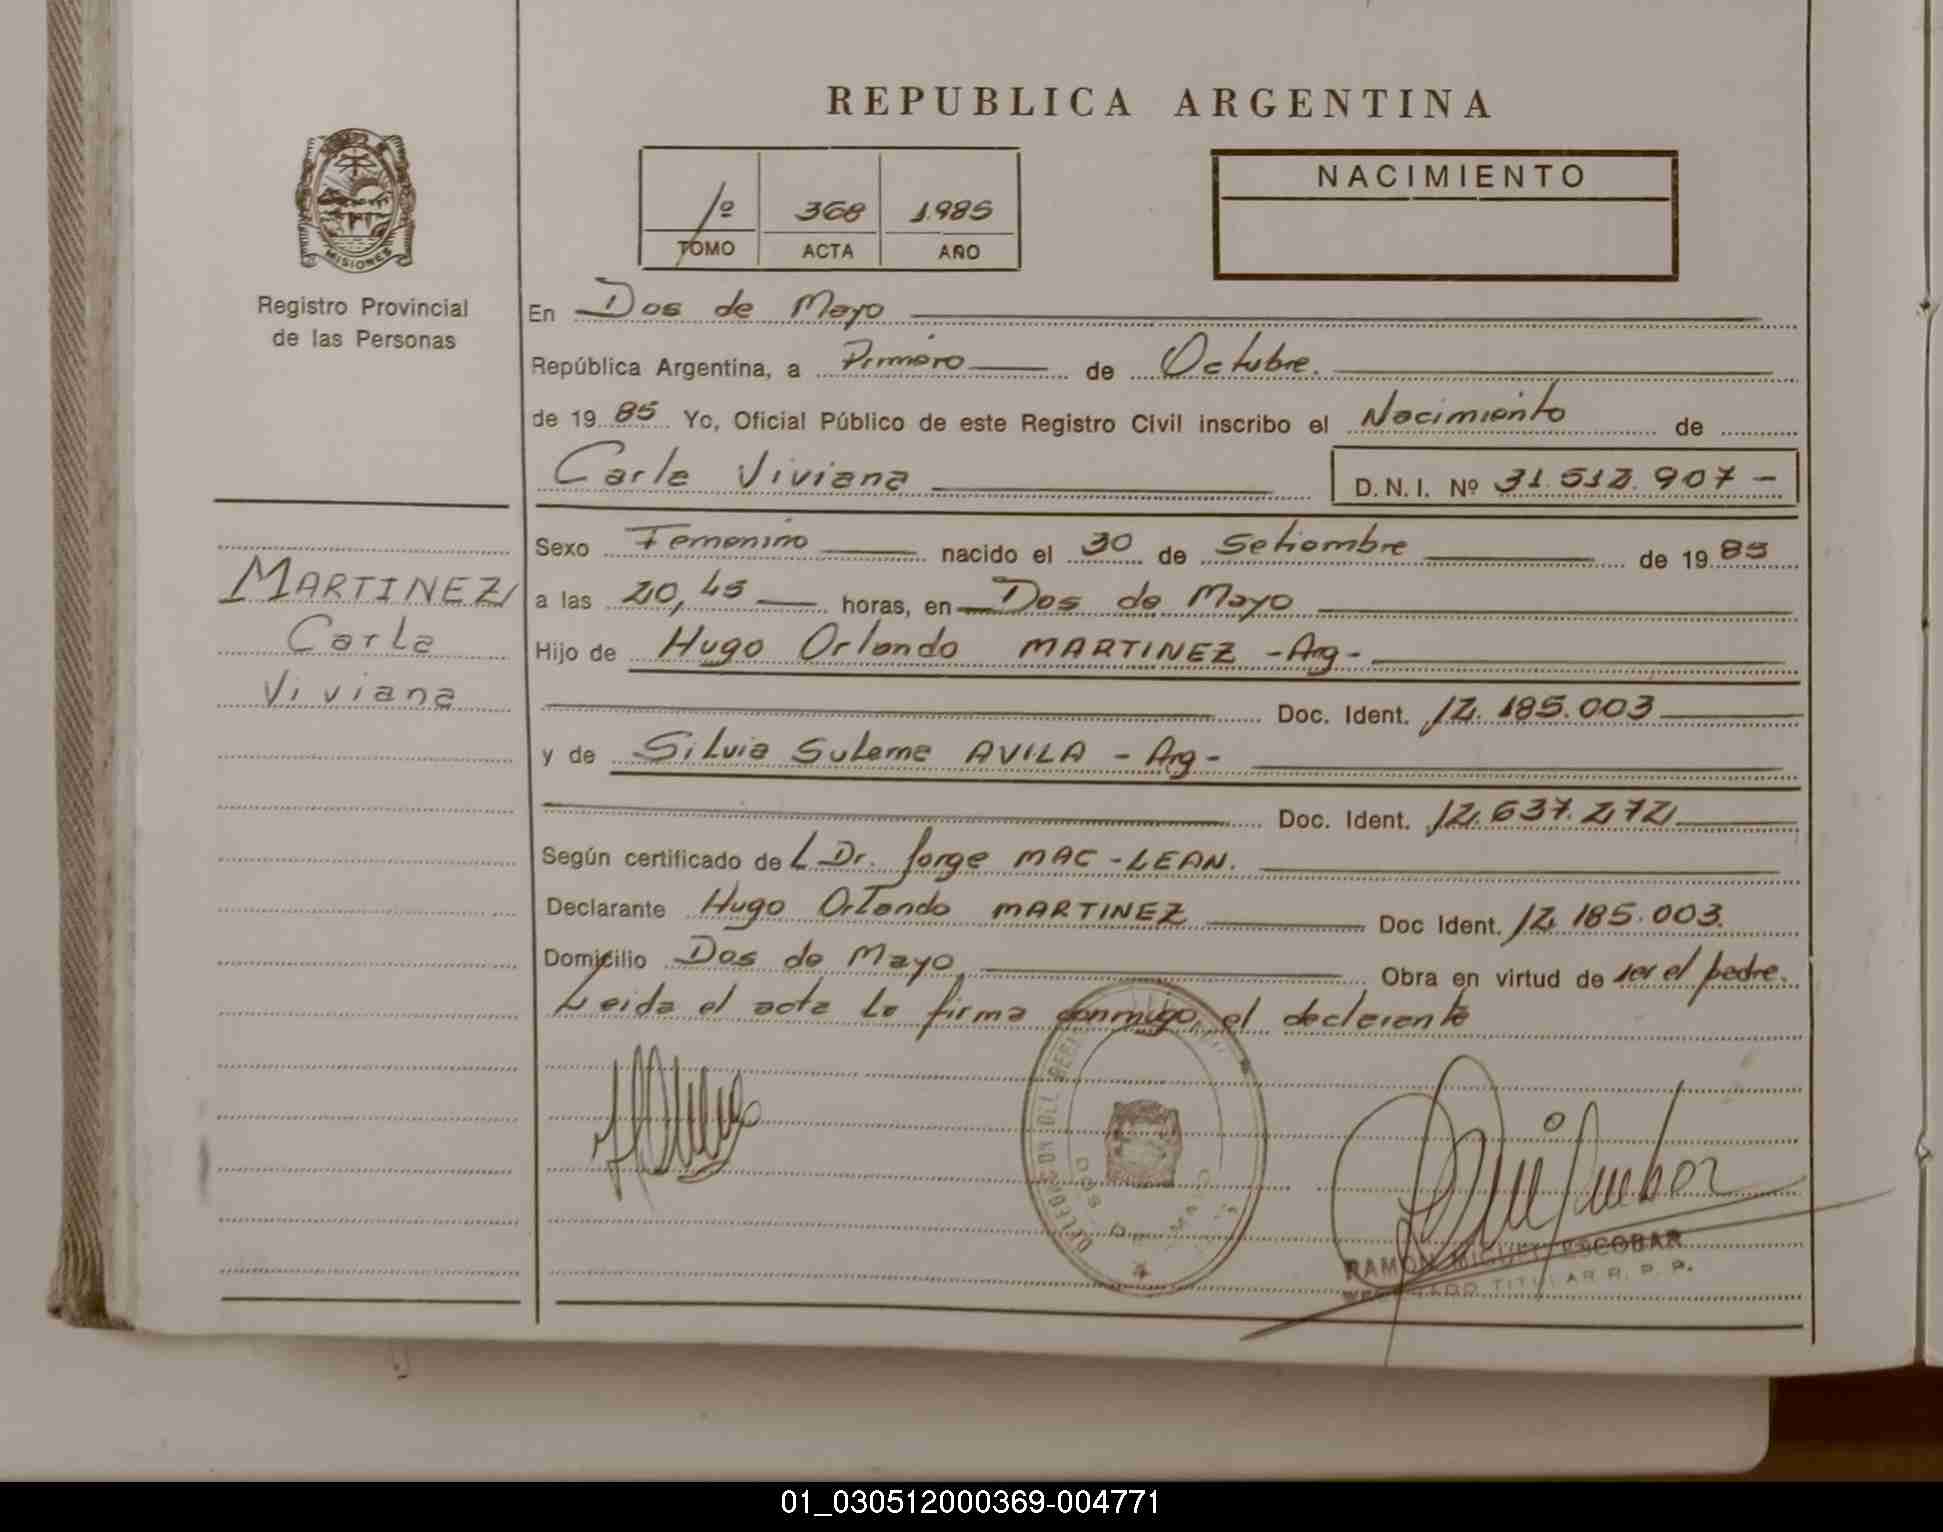 REPUBLICA ARGENTINA
MISIONES
Registro Provincial
de las Personas
1º 368 1.985
TOMO ACTA AÑO
NACIMIENTO
En Dos de Mayo
República Argentina, a Primero de Octubre.
de 19 85 Yo, Oficial Público de este Registro Civil inscribo el Nacimiento de
Carla Viviana D.N.I. Nº 31.512.907-
MARTINEZ
Carla
Viviana
Sexo Femenino nacido el 30 de Setiembre de 19 85
a las 20,45 horas, en Dos de Mayo
Hijo de Hugo Orlando MARTINEZ - Arg -
Doc. Ident. 12.185.003
y de Silvia Suleme AVILA - Arg -
Doc. Ident. 12.637.272
Según certificado de L Dr. Jorge MAC-LEAN.
Declarante Hugo Orlando MARTINEZ Doc Ident. 12.185.003.
Domicilio Dos de Mayo Obra en virtud de ser el padre.
Leida el acta la firma conmigo, el declarante
DOS DE MAYO
RAMON MIGUEL ESCOBAR
TITULAR R. P. P.
01_030512000369-004771